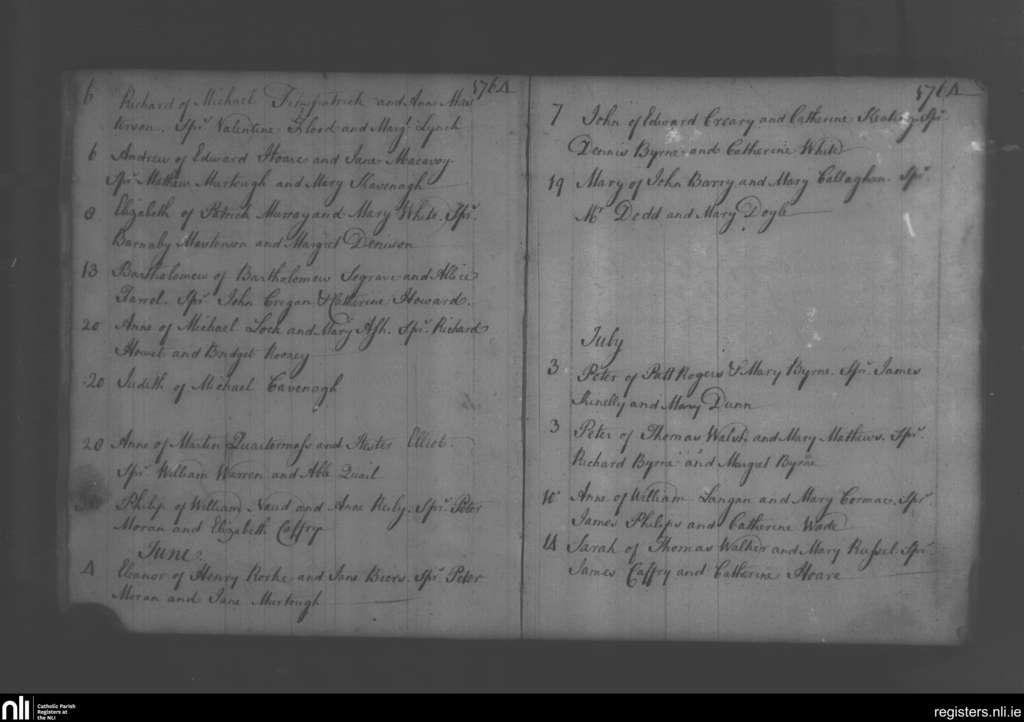 6 Richard of Michael Fitzpatrick and Anne Mas
terson. Spr. Valentine Flood and Marg.t Lynch
6 Andrew of Edward Hoare and Jane Macavoy
Spr. Mathew Murtough and Mary Kavenagh
8 Elizabeth of Patrick Murray and Mary White. Spr.
Barnaby Masterson and Margret Denison
13 Bartholomew of Bartholomew Segrave and Allice
Farrel. Spr. John Crogan & Catherine Howard.
20 Anne of Michael Lock and Mary Ash. Spr. Richard
Howet and Bridget Rooney
20 Judith of Michael Cavenagh
20 Anne of Martin Quartermass and Hester Elliot
Spr. William Warren and Abb Quail
Philip of William Naud and Anne Reily. Spr. Peter
Moran and Elizabeth Caffry
June
4 Eleanor of Henry Rorke and Jane Beers. Spr. Peter
Moran and Jane Murtough
7 John of Edward Creary and Catherine Keating Spr.
Dennis Byrne and Catherine White
19 Mary of John Barry and Mary Callaghan. Spr.
Mr. Dodd and Mary Doyle
July
3 Peter of Patt Rogers & Mary Byrne. Spr. James
Kinelly and Mary Dunn
3 Peter of Thomas Walsh and Mary Mathews. Spr.
Richard Byrne and Margret Byrne
10 Anne of William Langan and Mary Cormac. Spr.
James Philips and Catherine Wade
14 Sarah of Thomas Walker and Mary Russel Spr.
James Caffry and Catherine Hoare
nli Catholic Parish
Registers at
the NLI
registers.nli.ie